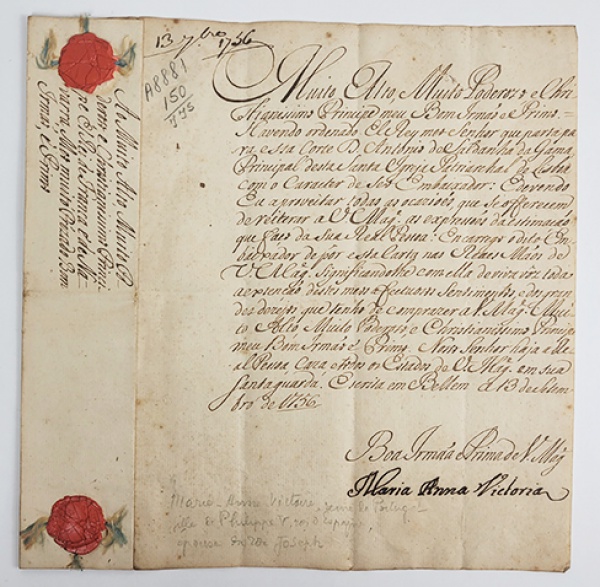 13 7bro 1756
A8881
150
JJS
Muito Alto, Muito Poderozo e Chri
stianissimo Principe meu Bom Irmaõ e Primo.=
Havendo ordenado El Rey meu Senhor que parta pa
ra essa Corte D. Antonio de Saldanha da Gama,
Principal desta Santa Igreja Patriarchal de Lisboa
com o Caracter de Seu Embaixador: E devendo
Eu aproveitar todas as occazioẽs que se offerecem
de reiterar a V. Mag.e as expressoẽs da estimaçaõ
que faço da Sua Real Pessoa: Encarrego o dito Em
baixador de por esta Carta nas Reaes Maõs de
V. Mag.e Significandolhe com ella de viva voz toda
a extençaõ destes meus affectuozos Sentimentos, e dos gran
des dezejos que tenho de comprazer a V. Mag.e Mui
to Alto Muito Poderozo, e Christianissimo Principe
meu Bom Irmaõ e Primo. Nosso Senhor haja a Re
al Pessoa, Caza e todos os Estados de V. Mag.e em sua
santa guarda. Escrita em Bellem a 13 de Setem
bro de 1756
Boa Irmãa e Prima de V. Mag.e
Maria Anna Victoria
Ao Muito Alto Muito P
derozo e Christianissimo Princi
pe El Rei de França e de Na
varra, Meu muito Prezado Bom
Irmaõ, e Primo
Marie-Anne Victoire, reine de Portugal
fille de Philippe V, roi d'Espagne,
épouse Joseph